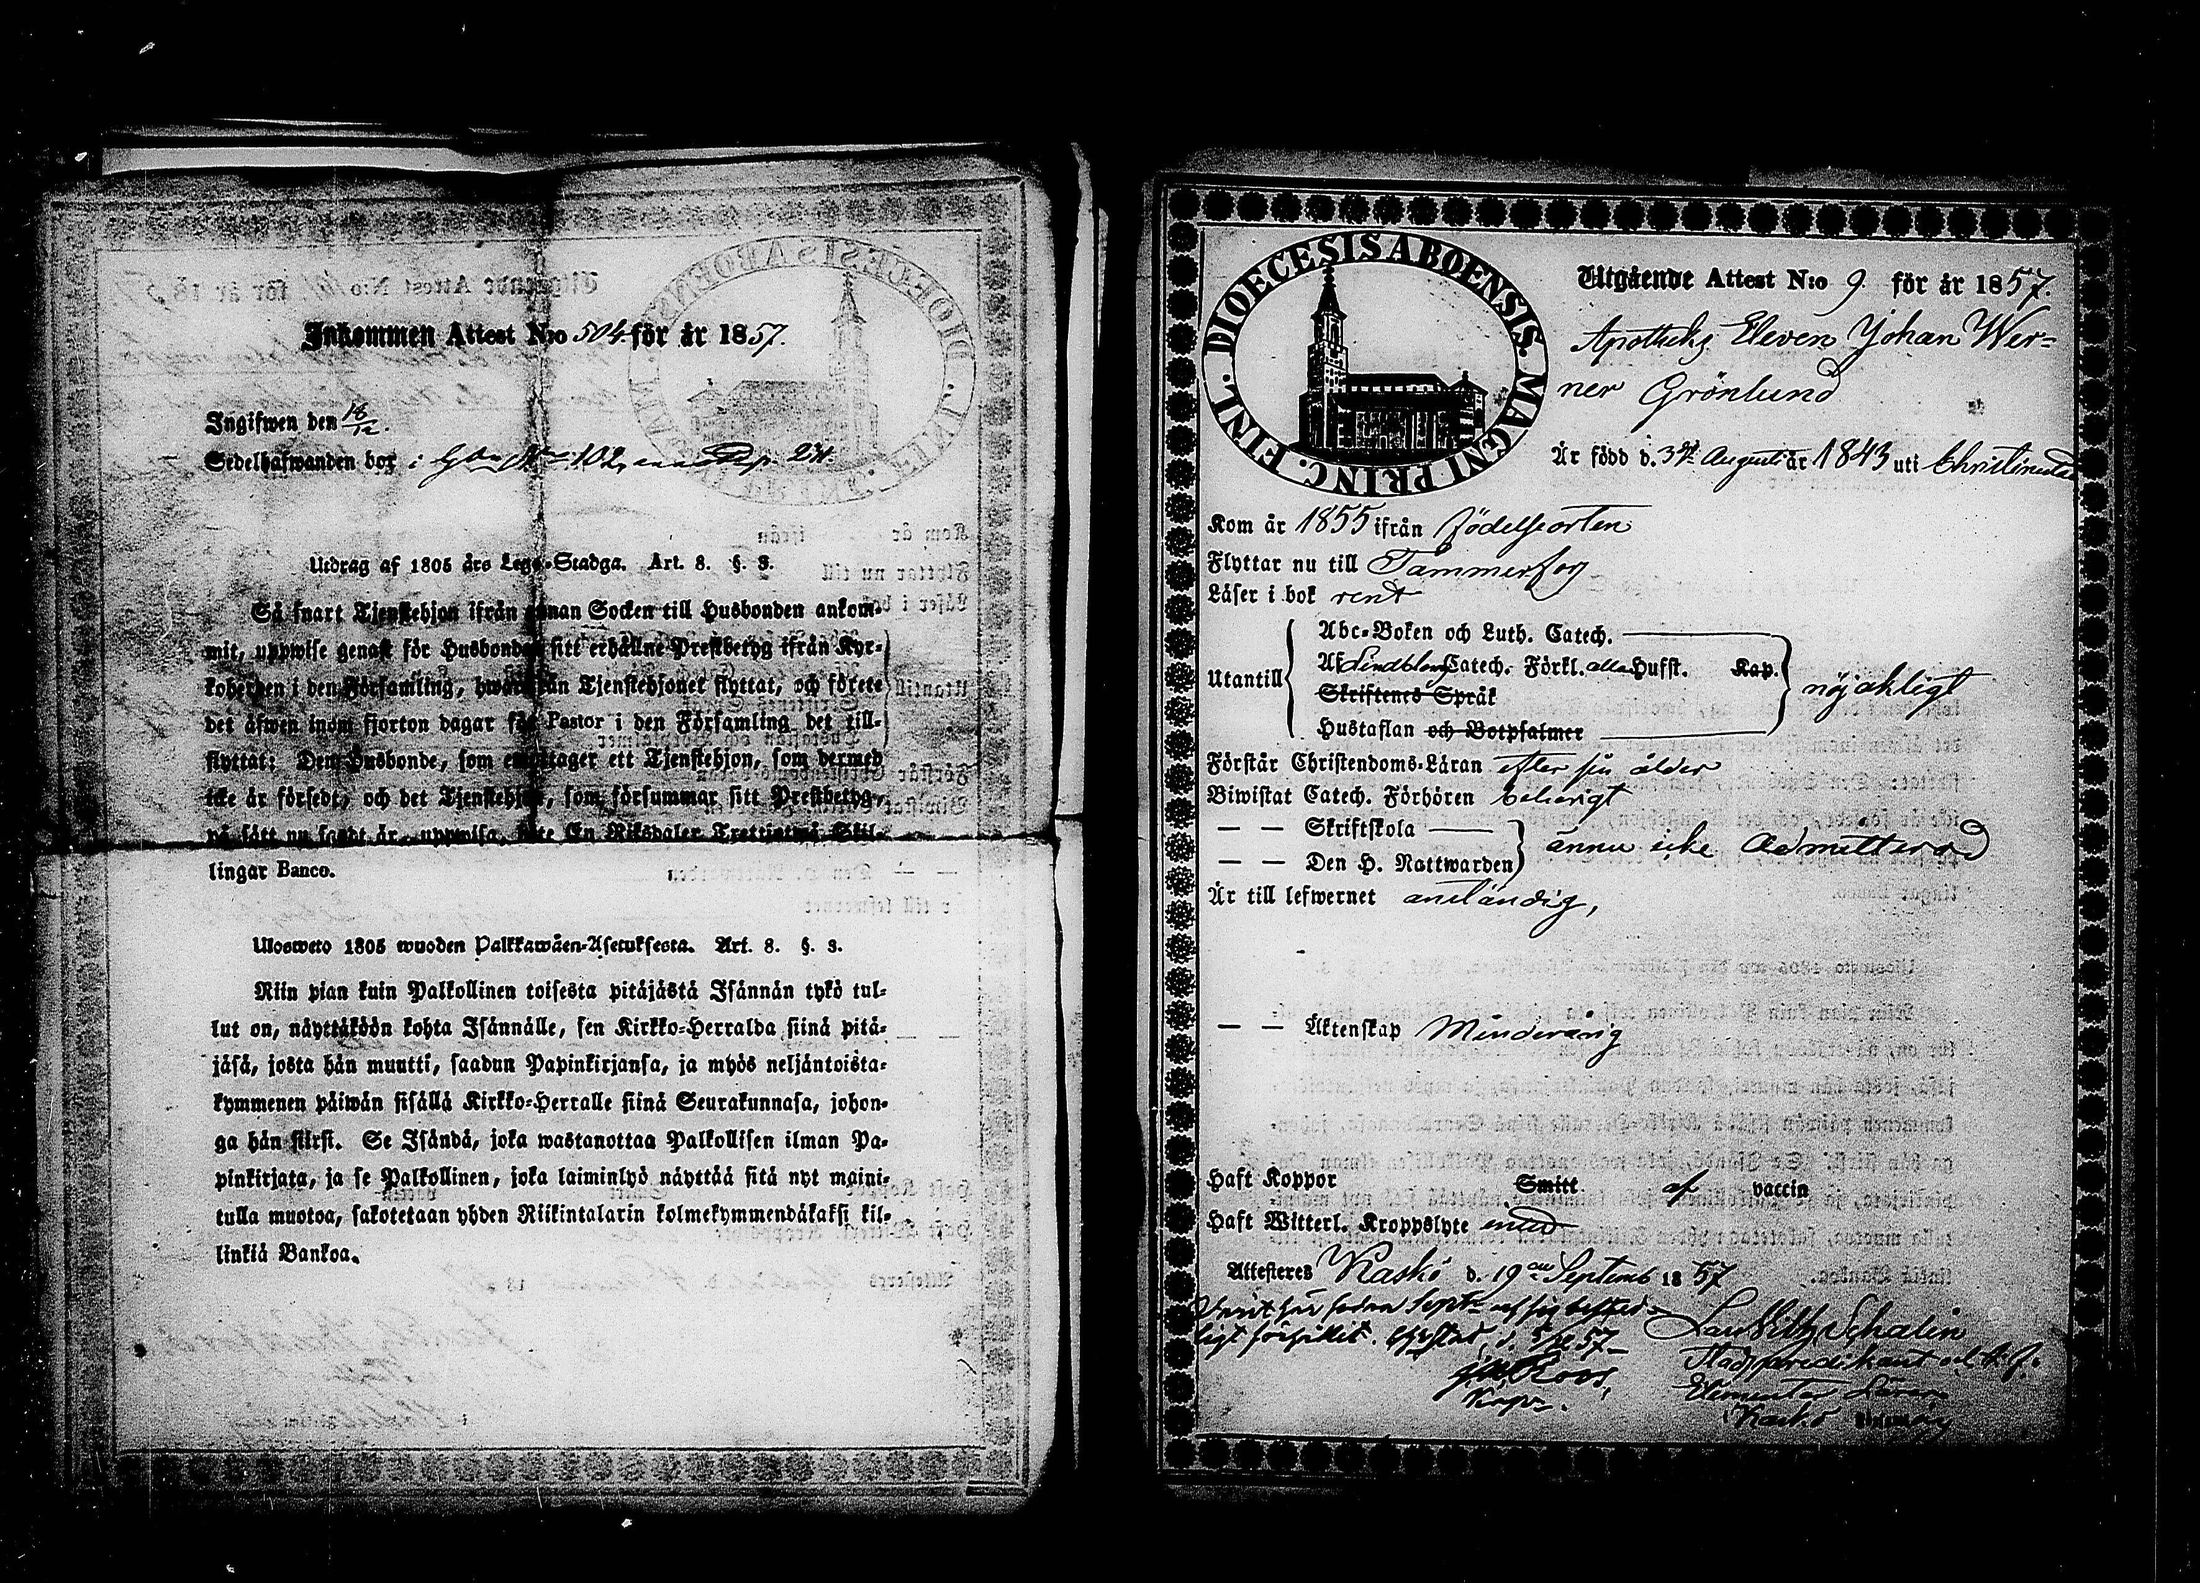 Inkommen Attest N:o 504 för år 1857.
Ingifwen den 18/12.
Sedelhafwanden bor i
Utdrag af 1805 års Lego-Stadga. Art. 8. §. 3.
Så snart Tjenstehjon ifrån annan Socken till Husbonden ankom-
mit, uppwise genast för Husbonden sitt erhållne Prestbetyg ifrån Kyr-
koherden i den Församling, hwarifrån Tjenstehjonet flyttat, och förete
det äfwen inom fjorton dagar för Pastor i den Församling det till-
flyttat; Den Husbonde, som emottager ett Tjenstehjon, som dermed
icke är försedt, och det Tjenstehjon, som försummar sitt Prestbetyg,
på sätt nu sagdt är, uppwisa, böte En Riksdaler Trettiotwå Skil-
lingar Banco.
Ulosweto 1805 wuoden Palkkawäen-Asetuksesta. Art. 8. §. 3.
Niin pian kuin Palkollinen toisesta pitäjästä Isännän tykö tul-
lut on, näyttäköön kohta Isännälle, sen Kirkko-Herralda siinä pitä-
jäsä, josta hän muutti, saadun Papinkirjansa, ja myös neljäntoista-
kymmenen päiwän sisällä Kirkko-Herralle siinä Seurakunnasa, johon-
ga hän siirsi. Se Isändä, joka wastanottaa Palkollisen ilman Pa-
pinkirjata, ja se Palkollinen, joka laiminlyö näyttää sitä nyt maini-
tulla muotoa, sakotetaan yhden Riikintalarin kolmekymmendäkaksi kil-
linkiä Bankoa.
DIOECESIS ABOENSIS. MAGNI PRINC. FINL.
Utgående Attest N:o 9 för år 1857.
Apotheks Eleven Johan Wer-
ner Grönlund
Är född d. 3 Augusti år 1843 uti Christinestad
Kom år 1855 ifrån födelseorten
Flyttar nu till Tammerfors
Läser i bok rent
Utantill
Abc-Boken och Luth. Catech.
Af Lindbloms Catech. Förkl. alla Hufst. Kap.
Skriftenes Språk
Hustaflan och Botpsalmer
nöjaktigt
Förstår Christendoms-Läran efter sin ålder
Biwistat Catech. Förhören behörigt
— — Skriftskola
— — Den H. Nattwarden
ännu icke admitterad
Är till lefwernet anständig,
— — Äktenskap Minderårig
Haft Koppor Smitt af vaccin
Haft Witterl. Kroppslyte intet
Attesteres Kaskö d. 19 Septemb 1857
Schalin
Roos,
Stadspredikant
Kaskö